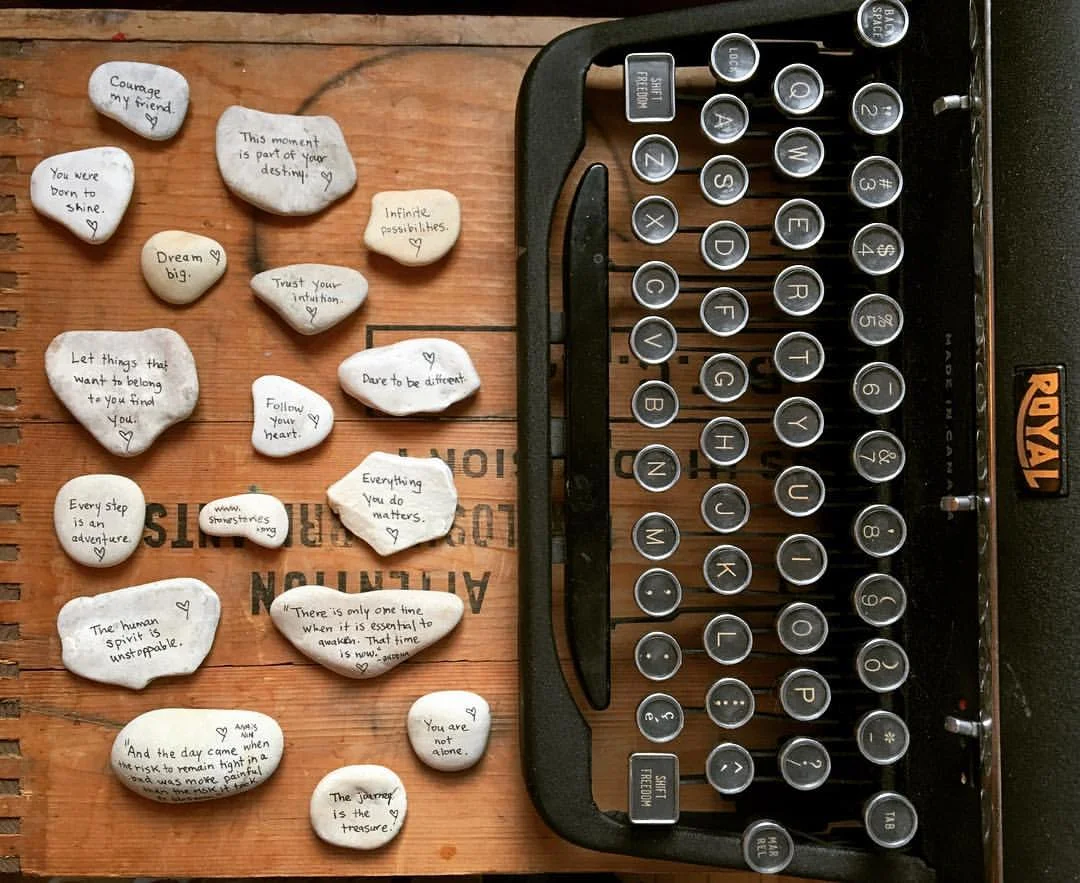 Courage
my friend.
This moment
is part of your
destiny.
You were
born to
shine.
Infinite
possibilities.
Dream
big.
Trust your
intuition.
Let things that
want to belong
to you find
you.
Dare to be different.
Follow
your
heart.
Everything
you do
matters.
Every step
is an
adventure.
www.
stonestories
.org
The human
spirit is
unstoppable.
"There is only one time
when it is essential to
awaken. That time
is now."
-BUDDHA
ANAÏS
NIN
"And the day came when
the risk to remain tight in a
bud was more painful
than the risk it took
to blossom
You are
not
alone.
The journey
is the
treasure.
ATTENTION
BACK
SPACE
LOCK
SHIFT
FREEDOM
" 2 # 3 $ 4 % 5 _ 6 & 7 ' 8 ( 9 ) 0 * -
Q W E R T Y U I O P
A S D F G H J K L
Z X C V B N M
SHIFT
FREEDOM
MAR
REL
TAB
MADE IN CANADA
ROYAL